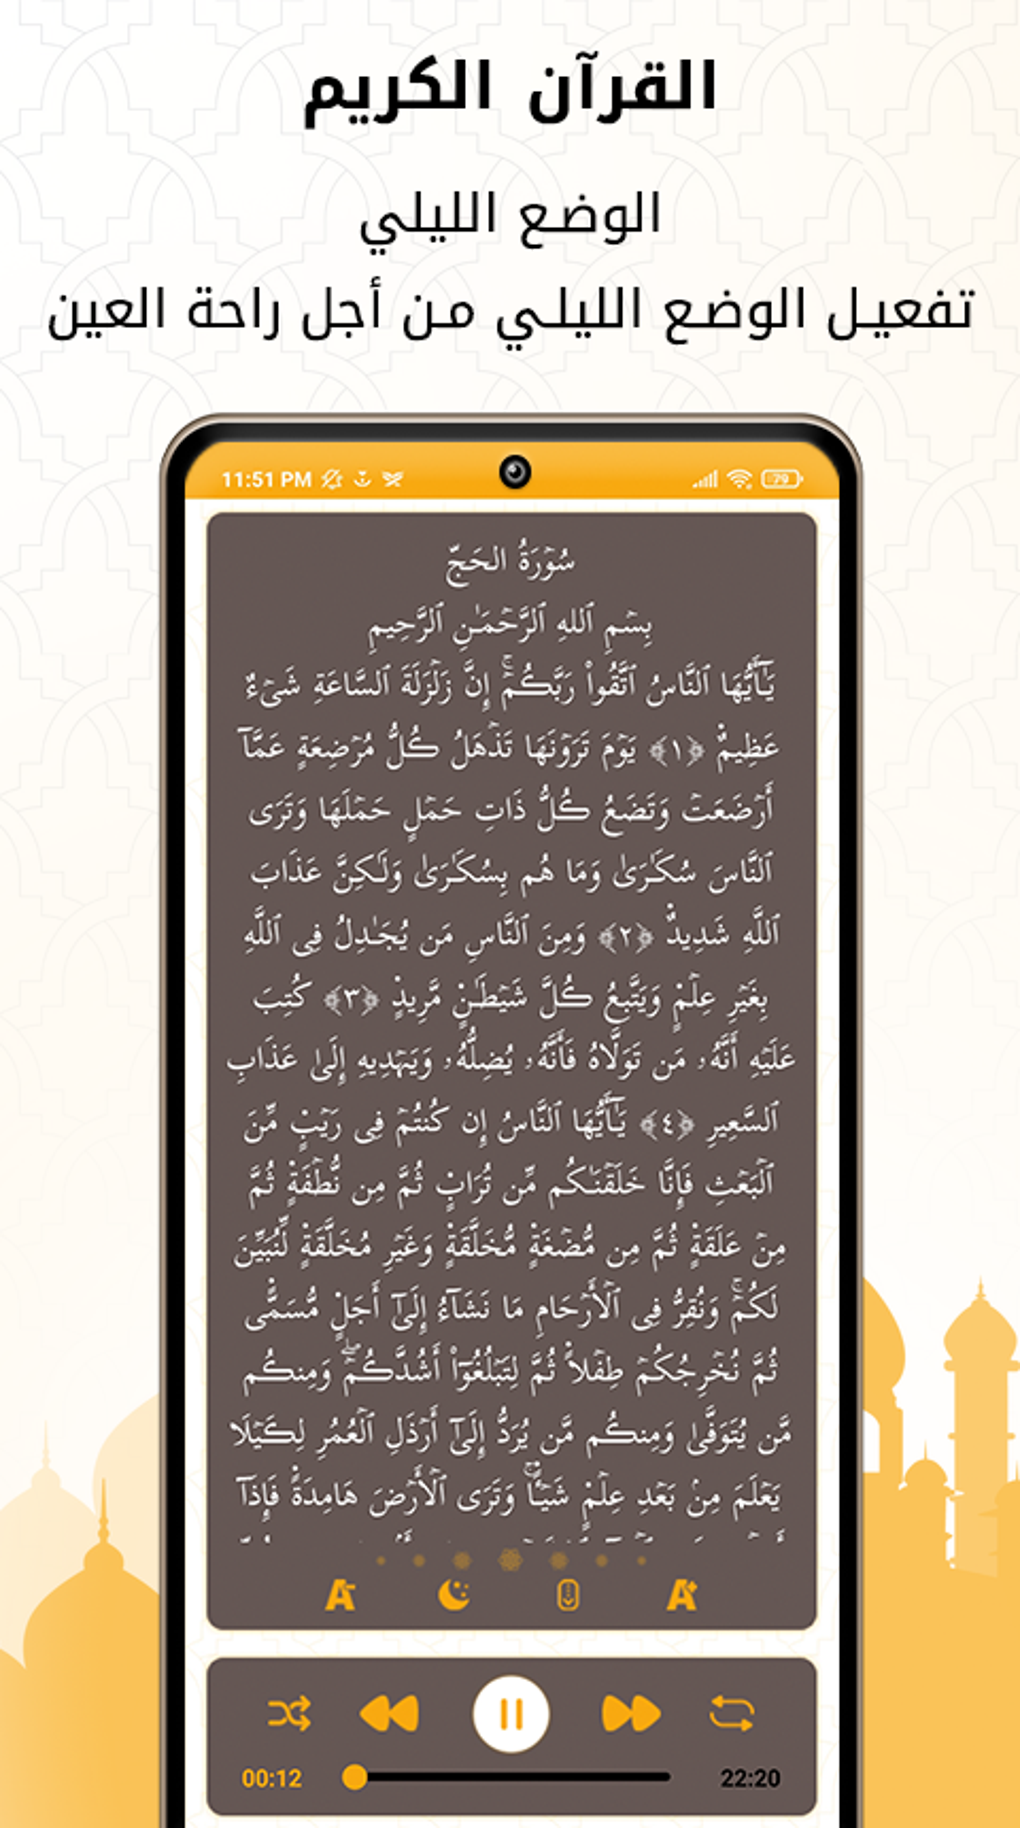 القرآن الكريم
الوضع الليلي
تفعيل الوضع الليلي من أجل راحة العين
11:51 PM
29
سُوۡرَةُ الحَجّ
بِسۡمِ ٱللهِ ٱلرَّحۡمَـٰنِ ٱلرَّحِيمِ
يَـٰٓأَيُّهَا ٱلنَّاسُ ٱتَّقُواْ رَبَّكُمۡۚ إِنَّ زَلۡزَلَةَ ٱلسَّاعَةِ شَىۡءٌ
عَظِيمٌ ﴿١﴾ يَوۡمَ تَرَوۡنَهَا تَذۡهَلُ ڪُلُّ مُرۡضِعَةٍ عَمَّآ
أَرۡضَعَتۡ وَتَضَعُ ڪُلُّ ذَاتِ حَمۡلٍ حَمۡلَهَا وَتَرَى
ٱلنَّاسَ سُكَـٰرَىٰ وَمَا هُم بِسُكَـٰرَىٰ وَلَـٰكِنَّ عَذَابَ
ٱللَّهِ شَدِيدٌ ﴿٢﴾ وَمِنَ ٱلنَّاسِ مَن يُجَـٰدِلُ فِى ٱللَّهِ
بِغَيۡرِ عِلۡمٍ وَيَتَّبِعُ ڪُلَّ شَيۡطَـٰنٍ مَّرِيدٍ ﴿٣﴾ كُتِبَ
عَلَيۡهِ أَنَّهُۥ مَن تَوَلَّاهُ فَأَنَّهُۥ يُضِلُّهُۥ وَيَہۡدِيهِ إِلَىٰ عَذَابِ
ٱلسَّعِيرِ ﴿٤﴾ يَـٰٓأَيُّهَا ٱلنَّاسُ إِن كُنتُمۡ فِى رَيۡبٍ مِّنَ
ٱلۡبَعۡثِ فَإِنَّا خَلَقۡنَـٰكُم مِّن تُرَابٍ ثُمَّ مِن نُّطۡفَةٍ ثُمَّ
مِنۡ عَلَقَةٍ ثُمَّ مِن مُّضۡغَةٍ مُّخَلَّقَةٍ وَغَيۡرِ مُخَلَّقَةٍ لِّنُبَيِّنَ
لَكُمۡۚ وَنُقِرُّ فِى ٱلۡأَرۡحَامِ مَا نَشَآءُ إِلَىٰٓ أَجَلٍ مُّسَمًّى
ثُمَّ نُخۡرِجُكُمۡ طِفۡلاً ثُمَّ لِتَبۡلُغُوٓاْ أَشُدَّڪُمۡۖ وَمِنڪُم
مَّن يُتَوَفَّىٰ وَمِنڪُم مَّن يُرَدُّ إِلَىٰٓ أَرۡذَلِ ٱلۡعُمُرِ لِڪَيۡلَا
يَعۡلَمَ مِنۢ بَعۡدِ عِلۡمٍ شَيۡـًٔاۚ وَتَرَى ٱلۡأَرۡضَ هَامِدَةً فَإِذَآ
A-
A+
00:12
22:20